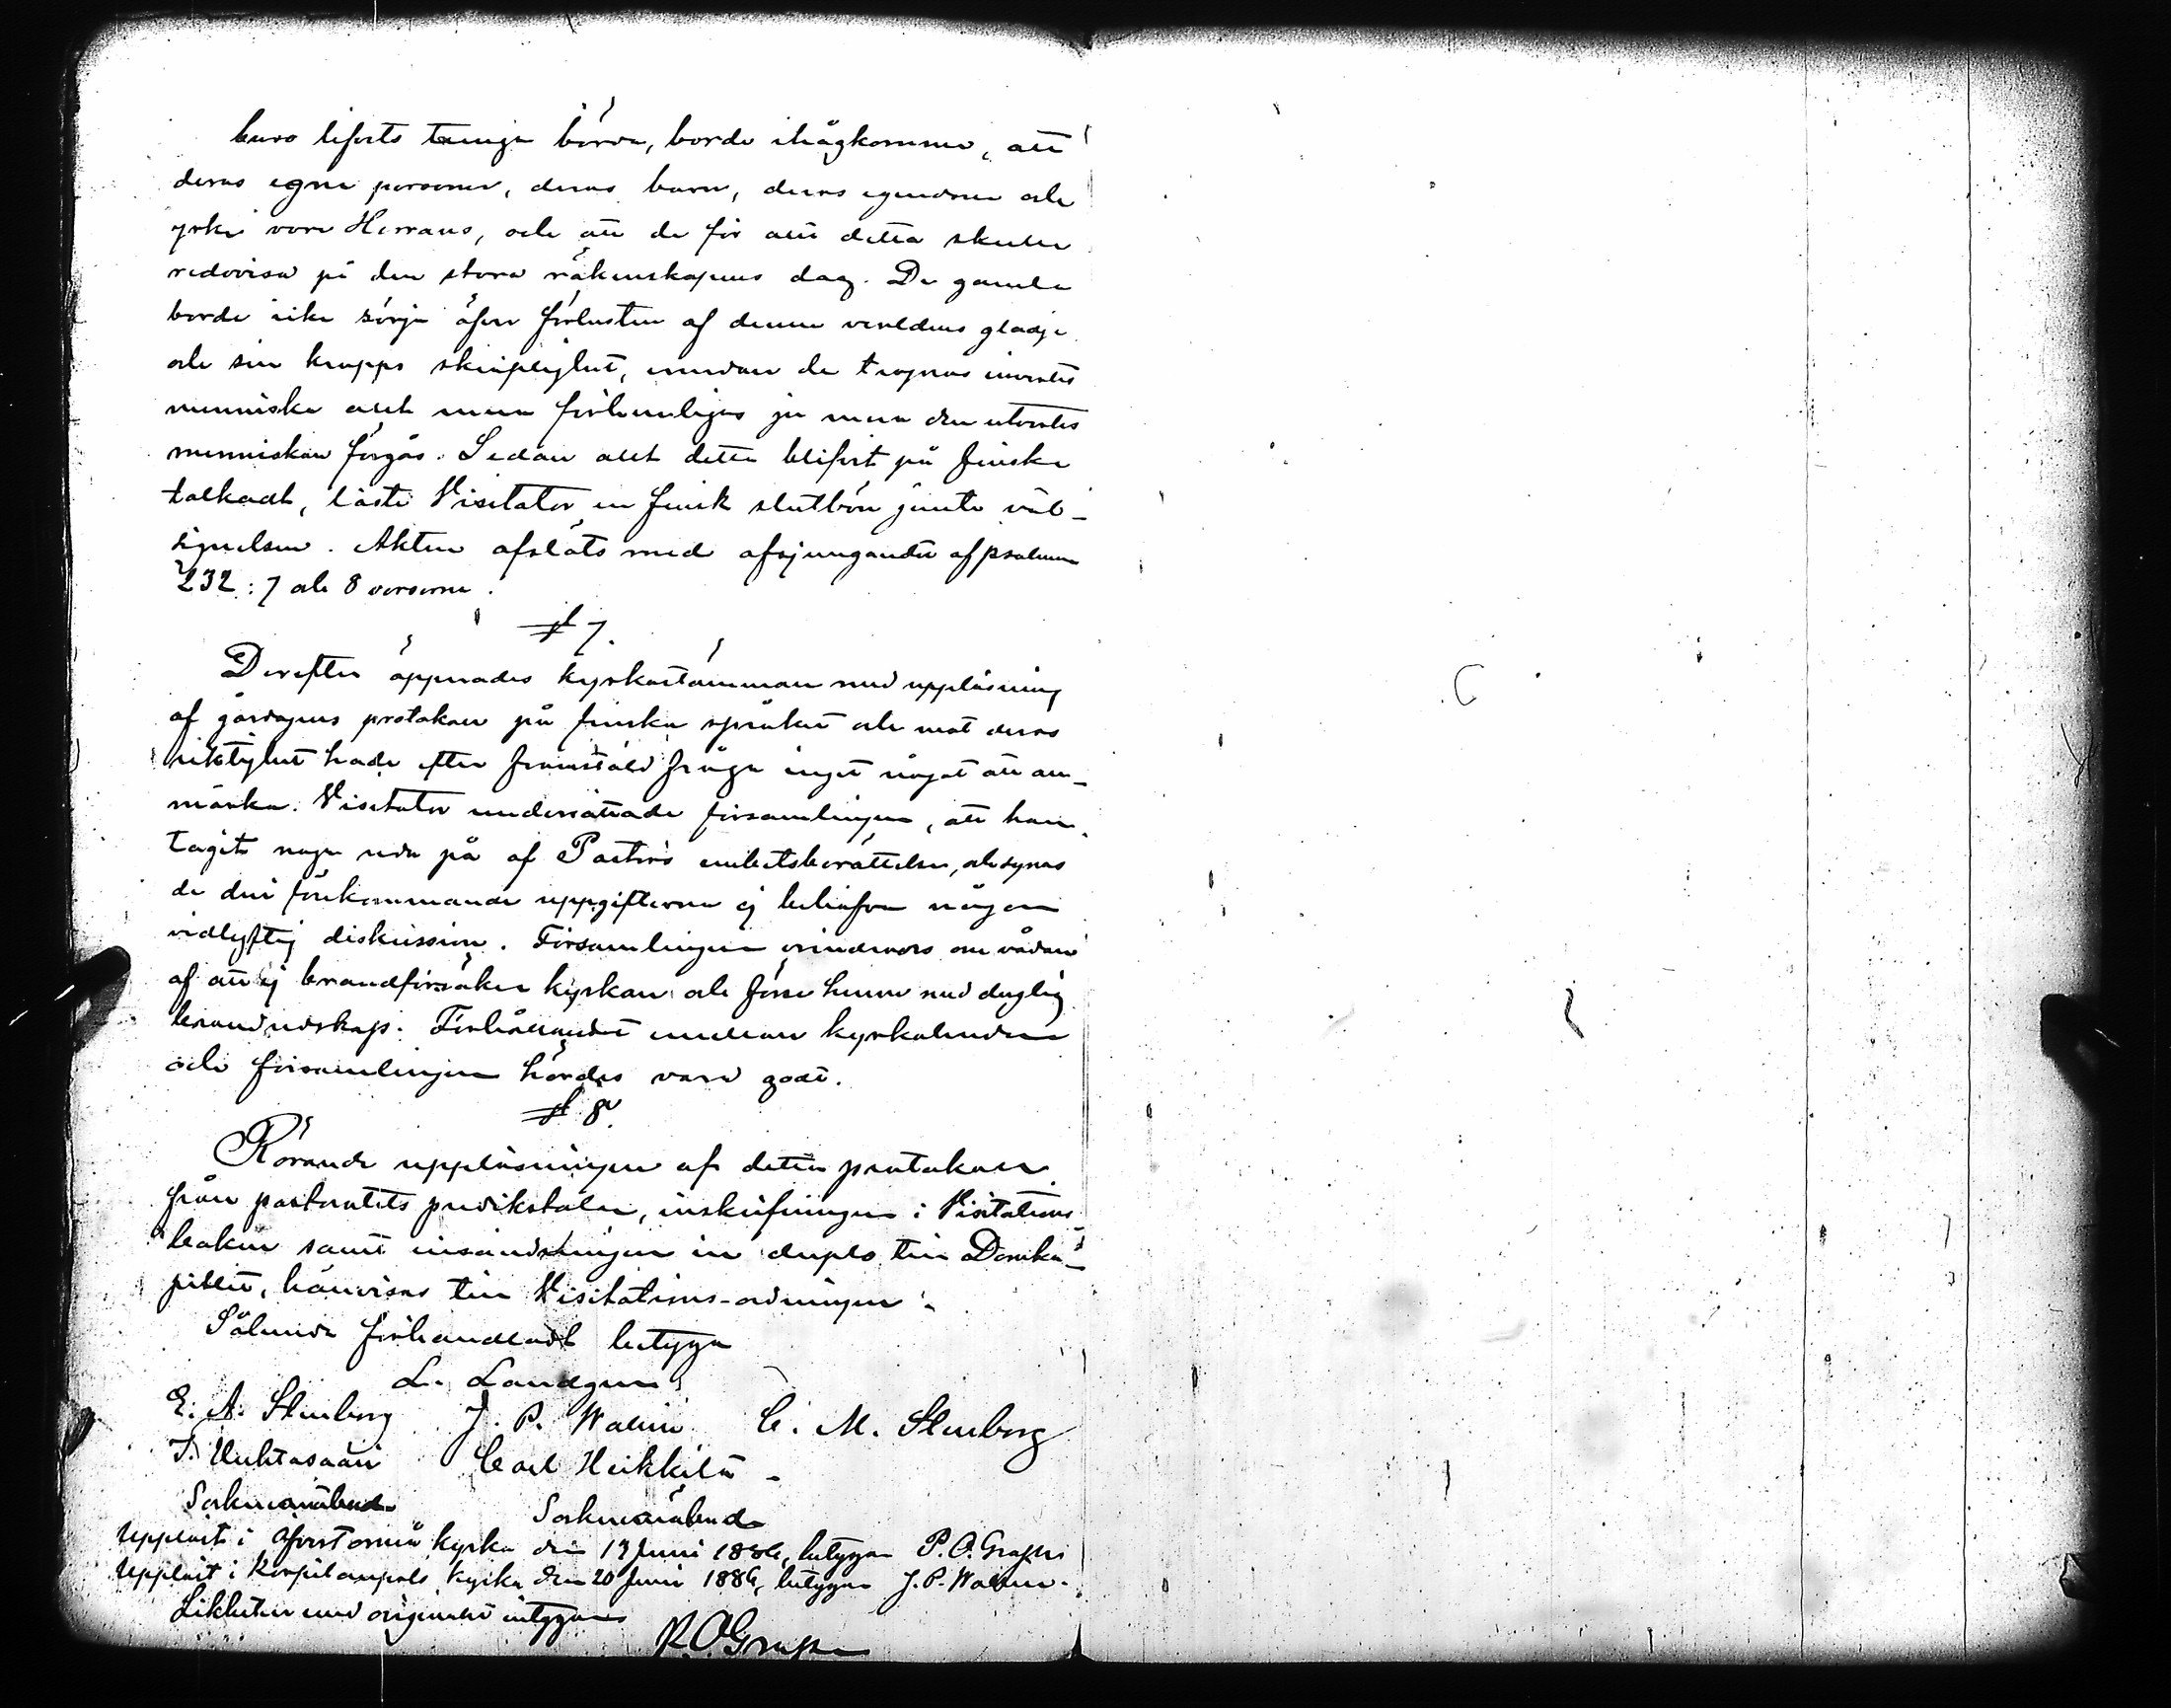 buro lifvets tunga börda, borde ihågkomma, att
deras egna personer, deras barn, deras egendom och
yrke voro Herrans, och att de för allt detta skulle
redovisa på den stora räkenskapens dag. De gamla
borde icke sörja öfver förlusten af denna verldens glädje
och sin kropps skröplighet, emedan de trognas invertes
menniska allt mera förhemligas ju mera den utvertes
menniskan förgås. Sedan allt detta blifvit på finska
tolkadt, läste Visitator en finsk slutbön jemte väl-
signelsen. Akten afslöts med afsjungandet af psalmen
232: 7 och 8 verserna.
§ 7.
Derefter öppnades kyrkostämman med uppläsning
af gårdagens protokoll på finska språket och mot deras
riktighet hade efter framstäld fråga inget något att an-
märka. Visitator underrättade församlingen, att han
tagit noga reda på af Pastors embetsberättelse, och synas
de deri förekommande uppgifterna ej behöfva någon
vidlyftig diskussion. Församlingen erindrades om vådan
af att ej brandförsäkra kyrkan och förse henne med duglig
brandredskap. Förhållandet mellan kyrkobetjente
och församlingen hördes vara godt.
§ 8.
Rörande uppläsningen af detta protokoll
från pastoratets predikstolar, inskrifningen i Visitations
boken samt insändningen in duplo till Domka-
pitlet, hänvisas till Visitations-ordningen.
Sålunda förhandladt betyga
L. Landgren
E. A. Stenborg J. P. Wallin C. M. Stenborg
J. Uuhtasaari Carl Heikkilä
Sockneombud Sockneombud
Uppläst i Öfvertorneå kyrka den 13 Juni 1886, betygar P. O. Grape
Uppläst i Korpilompolo kyrka den 20 Juni 1886, betygar J. P. Wallin.
Likheten med originalet intygar
P. O. Grape